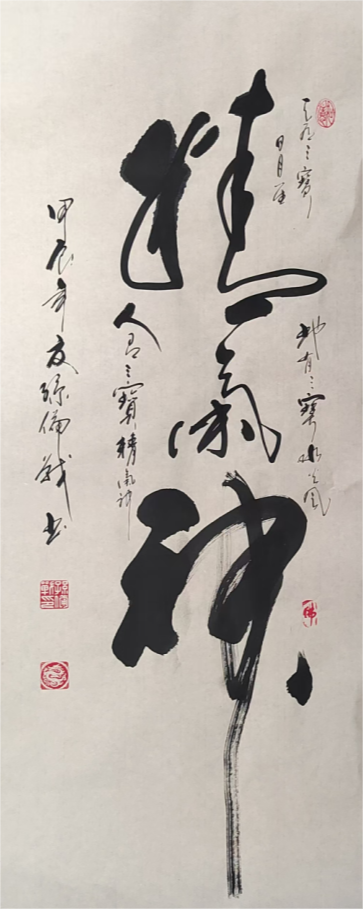 天有三寶
日月星
地有三寶水火風
精氣神
人有三寶精氣神
甲辰年 书